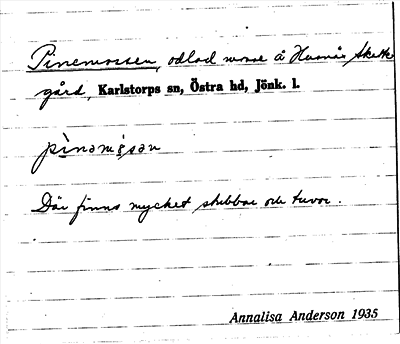 Pinemossen, odlad mosse å Husnäs skatte
gård, Karlstorps sn, Östra hd, Jönk. l.
pìnəmo̧sən
Där finns mycket stubbar och tuvor.
Annalisa Anderson 1935